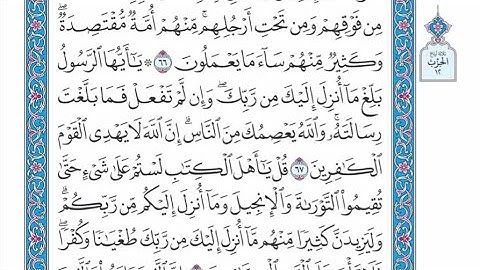 مِن فَوْقِهِمْ وَمِن تَحْتِ أَرْجُلِهِم ۚ مِّنْهُمْ أُمَّةٌ مُّقْتَصِدَةٌ ۖ
وَكَثِيرٌ مِّنْهُمْ سَاءَ مَا يَعْمَلُونَ ٦٦ ۞ يَٰٓأَيُّهَا ٱلرَّسُولُ
بَلِّغْ مَآ أُنزِلَ إِلَيْكَ مِن رَّبِّكَ ۖ وَإِن لَّمْ تَفْعَلْ فَمَا بَلَّغْتَ
رِسَالَتَهُۥ ۚ وَٱللَّهُ يَعْصِمُكَ مِنَ ٱلنَّاسِ ۗ إِنَّ ٱللَّهَ لَا يَهْدِى ٱلْقَوْمَ
ٱلْكَٰفِرِينَ ٦٧ قُلْ يَٰٓأَهْلَ ٱلْكِتَٰبِ لَسْتُمْ عَلَىٰ شَىْءٍ حَتَّىٰ
تُقِيمُوا۟ ٱلتَّوْرَىٰةَ وَٱلْإِنجِيلَ وَمَآ أُنزِلَ إِلَيْكُم مِّن رَّبِّكُمْ ۗ
وَلَيَزِيدَنَّ كَثِيرًا مِّنْهُم مَّآ أُنزِلَ إِلَيْكَ مِن رَّبِّكَ طُغْيَٰنًا وَكُفْرًا ۖ
الحزب
١٢